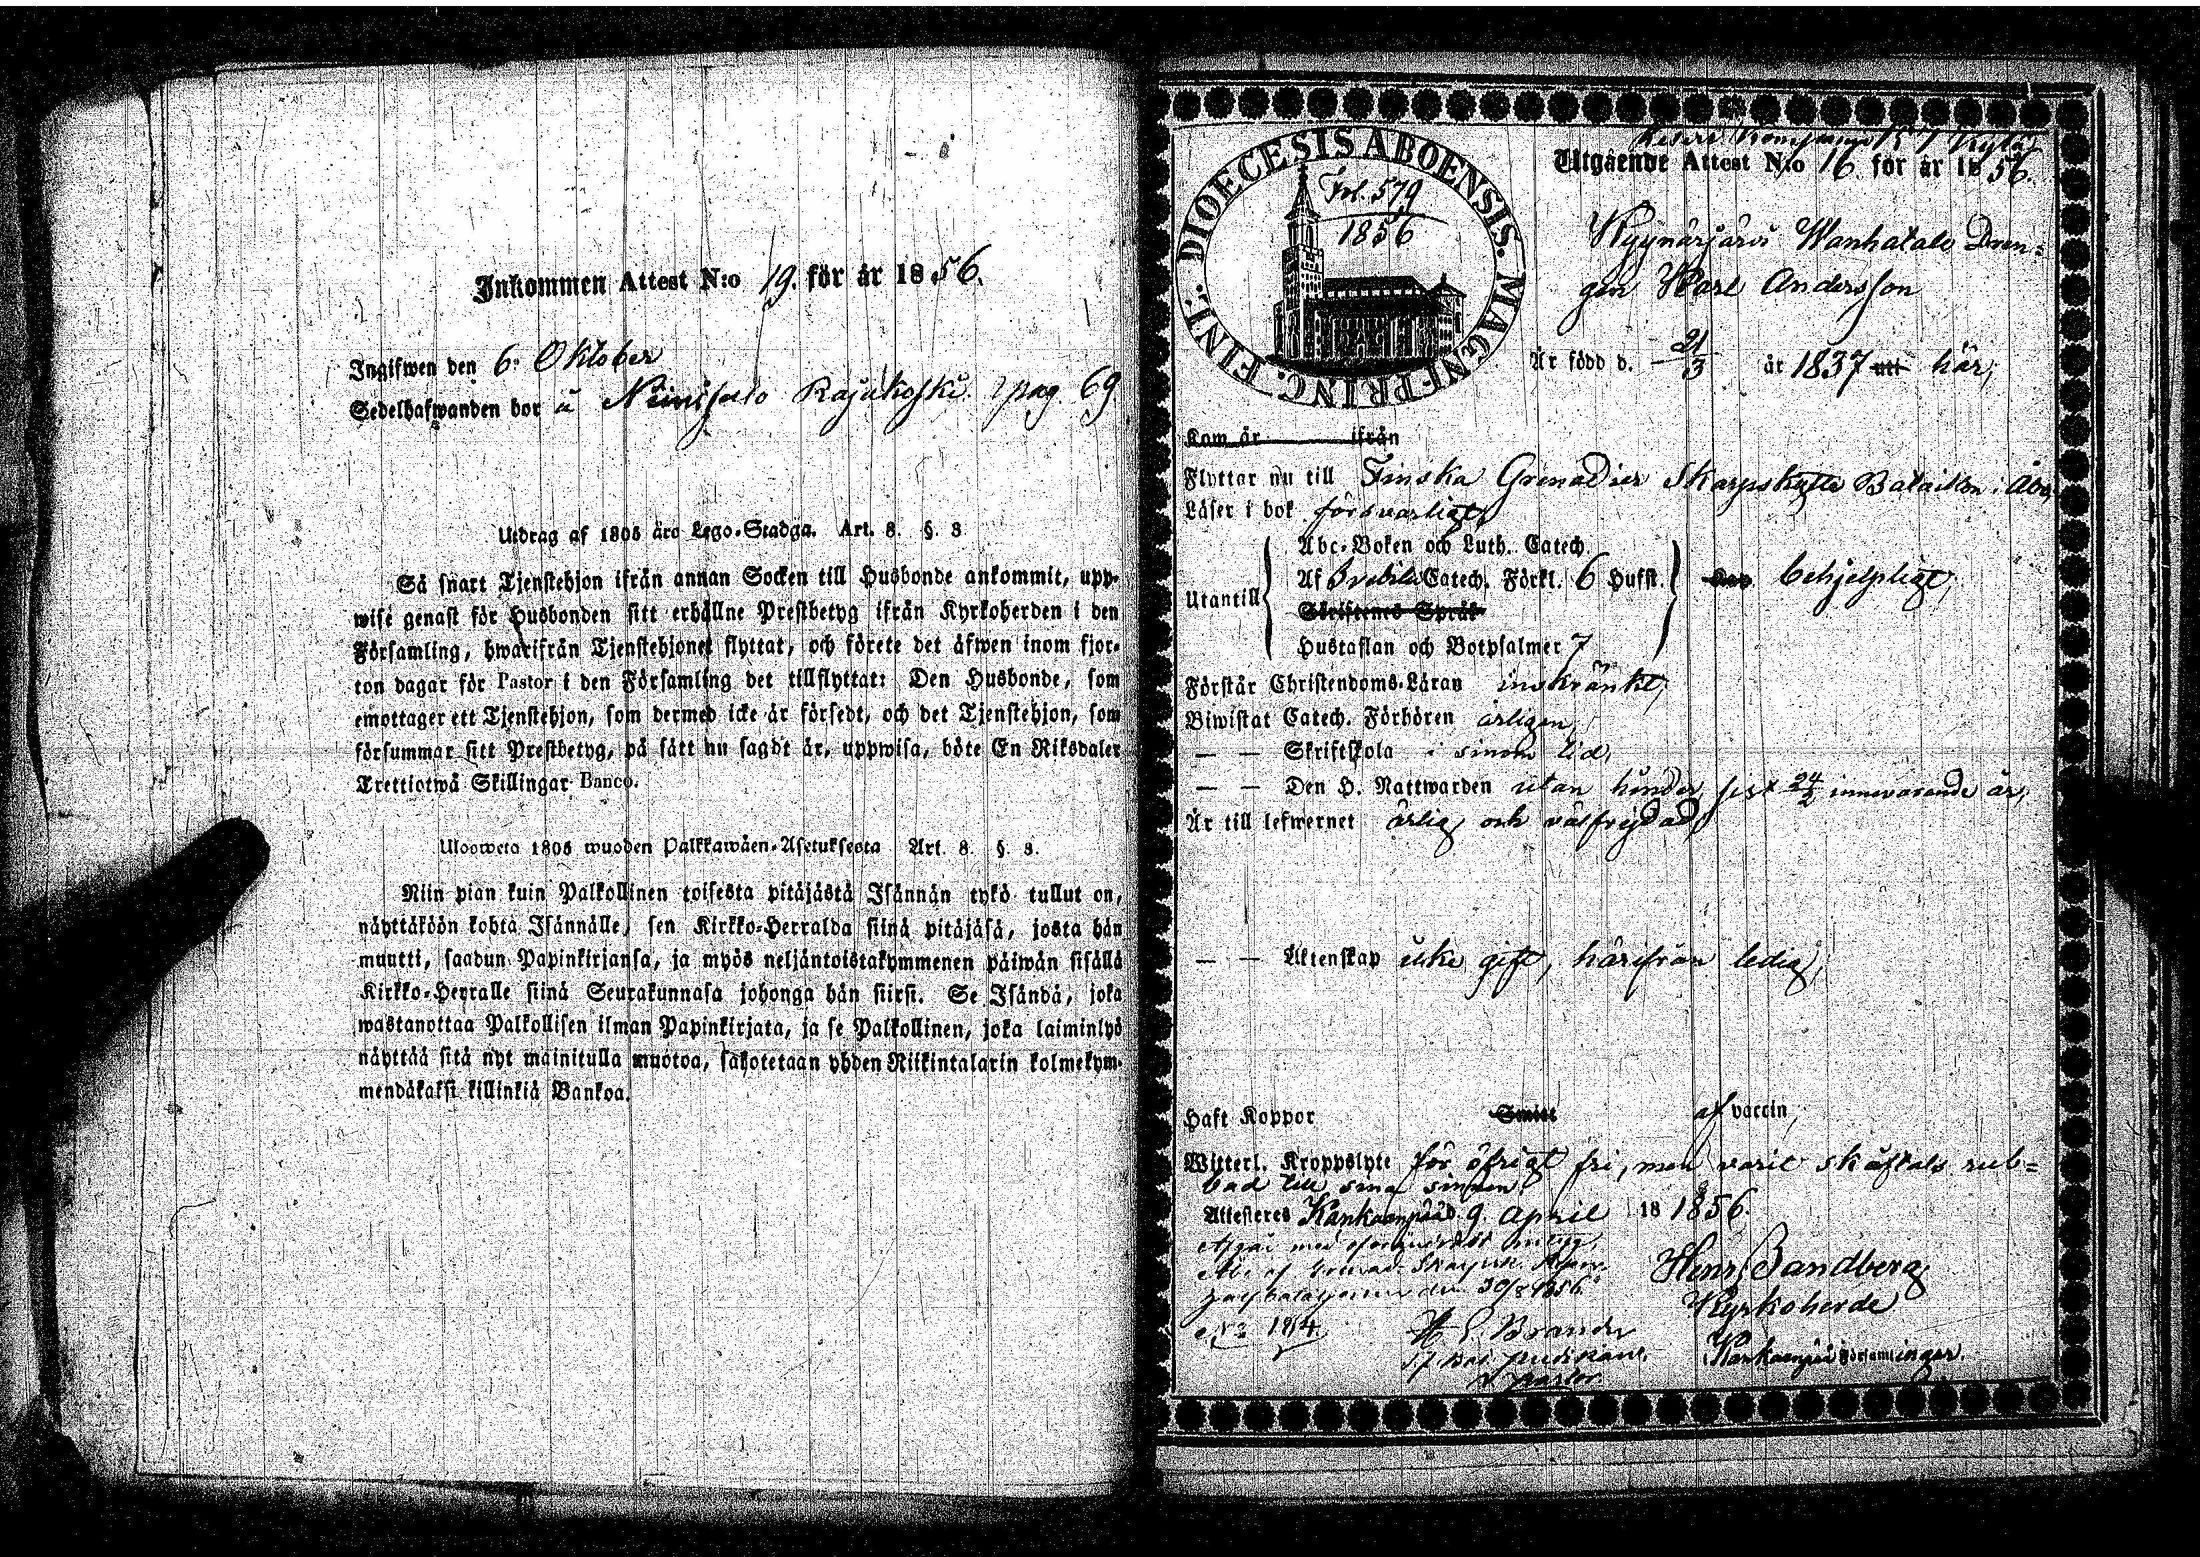 Inkommen Attest N:o 19. för år 1856.
Ingifwen den 6 Oktober
Sedelhafwanden bor å Niinisalo Rajakoski. pag. 69
Utdrag af 1805 års Lego-Stadga. Art. 8. §. 8
Så snart Tjenstehjon ifrån annan Socken till Husbonde ankommit, upp-
wise genast för Husbonden sitt erhållne Prestbetyg ifrån Kyrkoherden i den
Församling, hwarifrån Tjenstehjonet flyttat, och förete det äfwen inom fjor-
ton dagar för Pastor i den Församling det tillflyttat: Den Husbonde, som
emottager ett Tjenstehjon, som dermed icke är försedt, och det Tjenstehjon, som
försummar sitt Prestbetyg, på sätt nu sagdt är, uppwisa, böte En Riksdaler
Trettiotwå Skillingar Banco.
Ulosweto 1805 wuoden Palkkawäen-Asetuksesta Art. 8. §. 8.
Niin pian kuin Palkollinen toisesta pitäjästä Isännän tykö tullut on,
näyttäköön kohta Isännälle, sen Kirkko-Herralda siinä pitäjäsä, josta hän
muutti, saadun Papinkirjansa, ja myös neljäntoistakymmenen päiwän sisällä
Kirkko-Herralle siinä Seurakunnasa johonga hän siirsi. Se Isändä, joka
wastanottaa Palkollisen ilman Papinkirjata, ja se Palkollinen, joka laiminlyö
näyttää sitä nyt mainitulla muotoa, sakotetaan yhden Riikintalarin kolmekym-
mendäkaksi killinkiä Bankoa.
DIOECESIS ABOENSIS. MAGNI PRINC. FINL.
Fol. 579
1856
Utgående Attest N:o 16 för år 1856.
Kyynärjärvi Wanhatalo Dren-
gen Karl Andersson
Är född d. 21/3 år 1837 utt här,
Kom år ifrån
Flyttar nu till Finska Grenadier Skarpskytte Bataillon i Åbo,
Läser i bok försvarligt,
Utantill
Abc-Boken och Luth. Catech.
Af Svebilii Catech. Förkl. 6 Hufst. behjelpligt,
Skriftenes Språk
Hustaflan och Botpsalmer 7
Förstår Christendoms-Läran inskränkt,
Biwistat Catech. Förhören årligen,
— — Skriftskola i sinom tid,
— — Den H. Nattwarden utan hinder, sist 24/2 innevarande år,
Är till lefwernet ärlig och välfrejdad,
— — Äktenskap icke gift, härifrån ledig,
Haft Koppor Smitt af vaccin,
Witterl. Kroppslyte för öfrigt fri, men varit skäftals rub-
bad till sina sinnen.
Attesteras Kankaanpää d. 9. April 18 1856.
Henr. Sandberg
Kyrkoherde
30/8 1856.
No 184.
H E Brander
Pastor
Kankaanpää Församlingar.